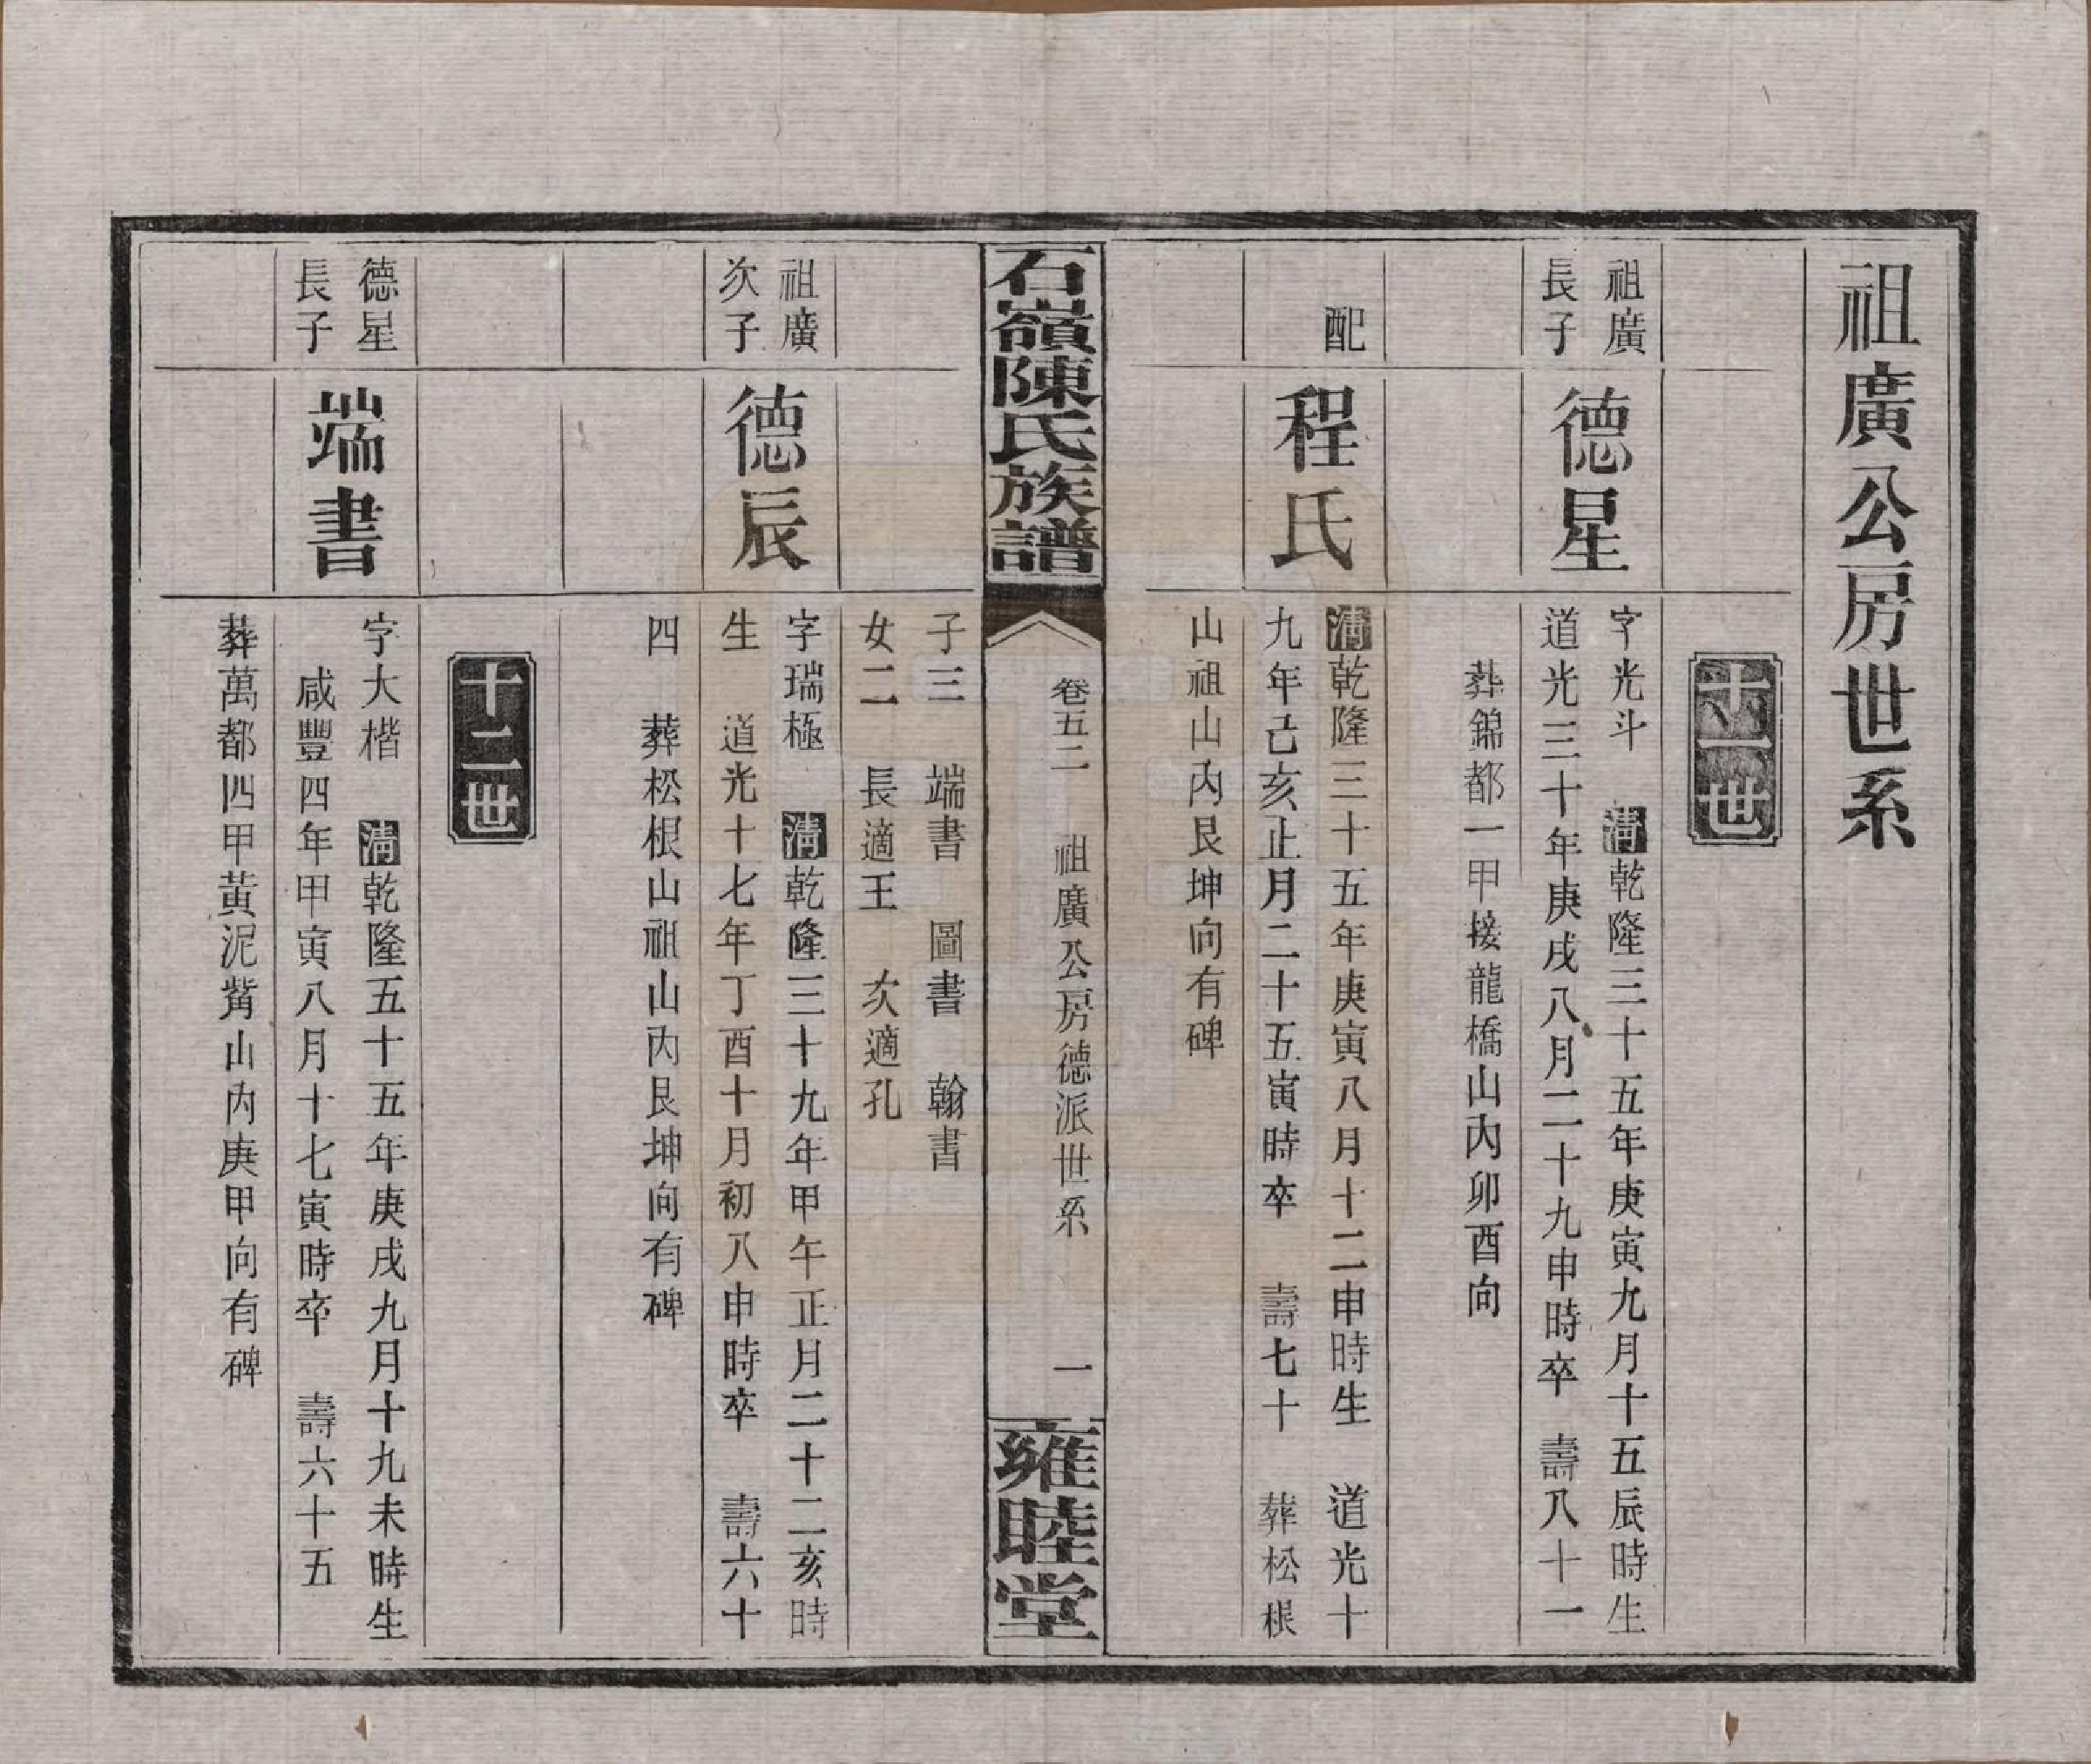 祖廣公房世系
十一世
祖廣
長子
德星
字光斗　清乾隆三十五年庚寅九月十五辰時生
道光三十年庚戌八月二十九申時卒　壽八十一
葬錦都一甲接龍橋山內卯酉向
配
程氏
清乾隆三十五年庚寅八月十二申時生　道光十
九年己亥正月二十五寅時卒　壽七十　葬松根
山祖山內艮坤向有碑
石嶺陳氏族譜
卷五二　祖廣公房德派世系　一
雍睦堂
子三　端書　圖書　翰書
女二　長適王　次適孔
祖廣
次子
德辰
字瑞極　清乾隆三十九年甲午正月二十二亥時
生　道光十七年丁酉十月初八申時卒　壽六十
四　葬松根山祖山內艮坤向有碑
十二世
德星
長子
端書
字大楷　清乾隆五十五年庚戌九月十九未時生
咸豐四年甲寅八月十七寅時卒　壽六十五
葬萬都四甲黃泥嘴山內庚甲向有碑